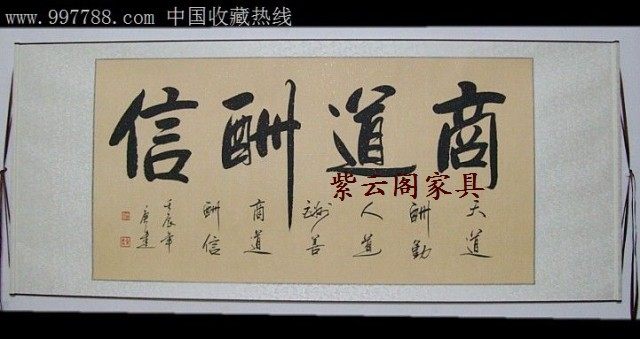 www.997788.com 中国收藏热线
商道酬信
紫云阁家具
天道
酬勤
人道
酬善
商道
酬信
壬辰年
唐建